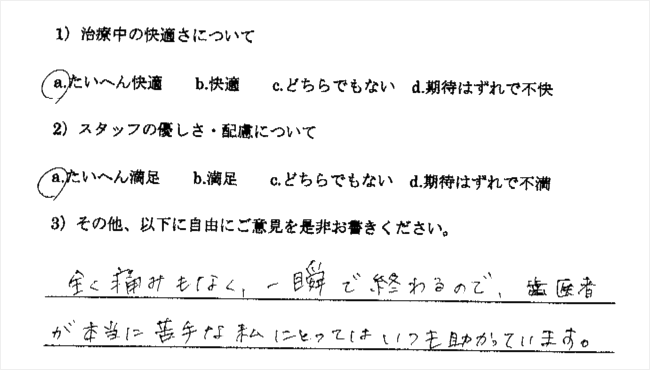 1）治療中の快適さについて
a.たいへん快適 b.快適 c.どちらでもない d.期待はずれで不快
2）スタッフの優しさ・配慮について
a.たいへん満足 b.満足 c.どちらでもない d.期待はずれで不満
3）その他、以下に自由にご意見を是非お書きください。
全く痛みもなく、一瞬で終わるので、歯医者
が本当に苦手な私にとってはいつも助かっています。